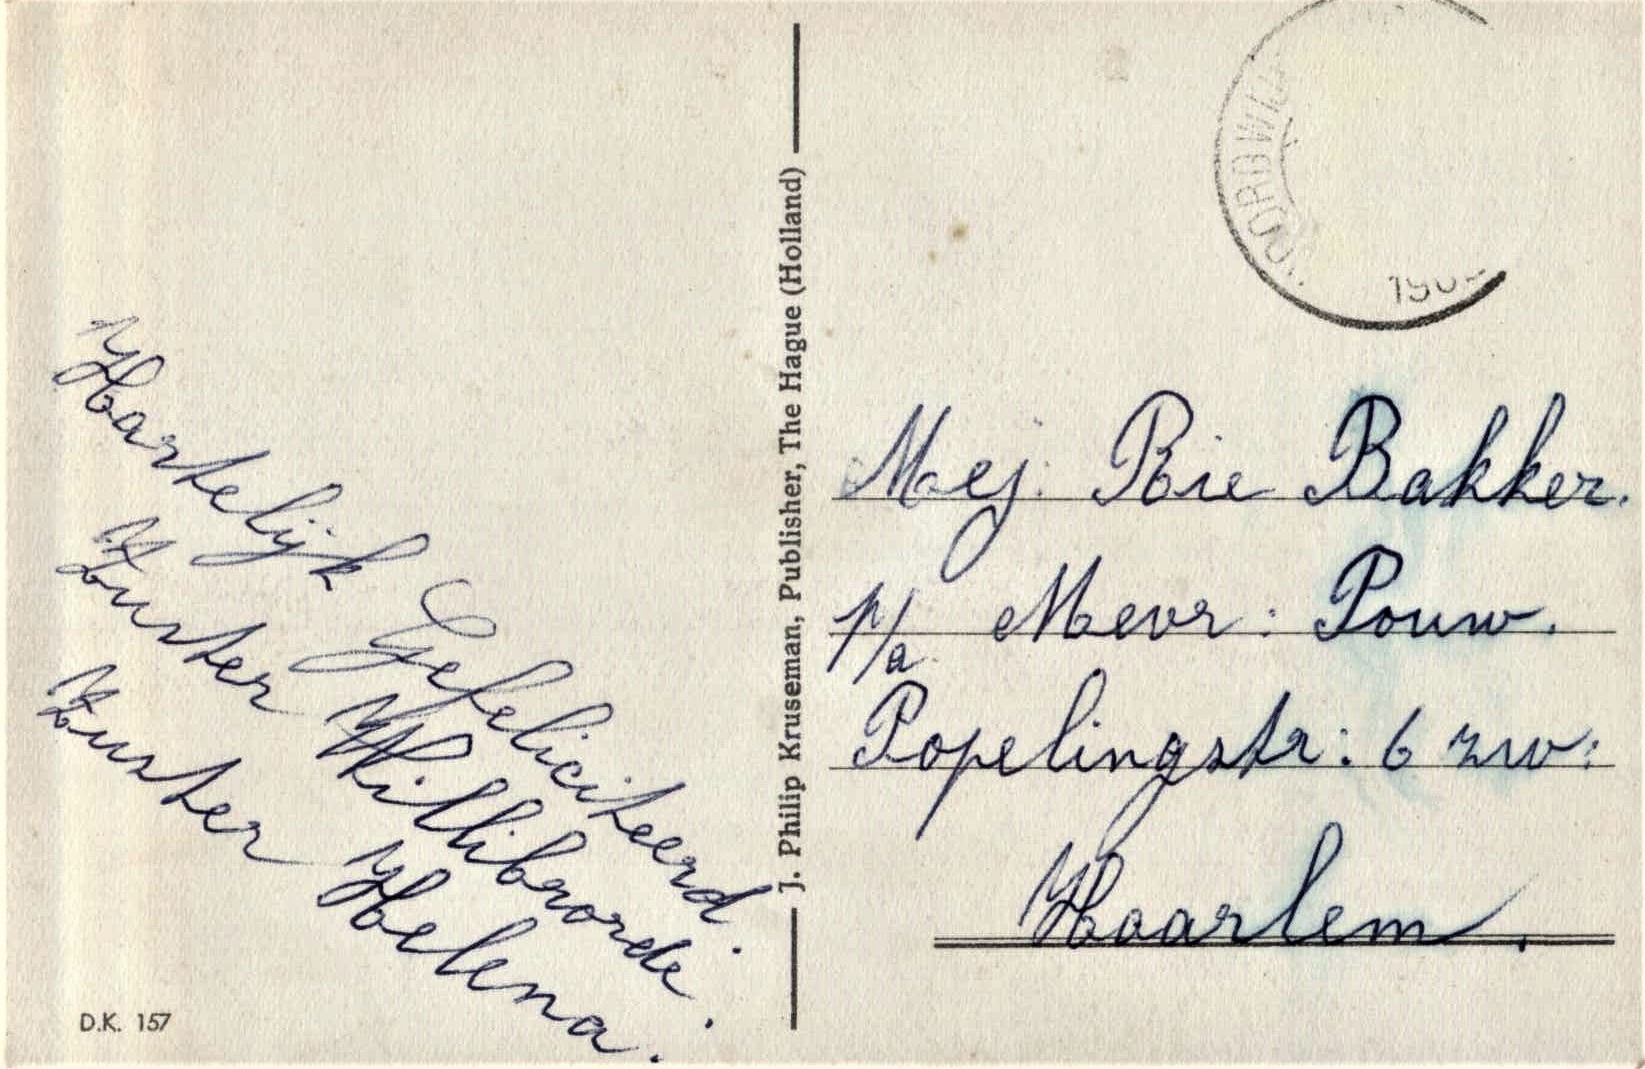 Hartelijk Gefeliciteerd.
Zuster Willibrorde.
Zuster Helena.
D.K. 157
J. Philip Kruseman, Publisher, The Hague (Holland)
Mej. Rie Bakker.
p/a Mevr: Pouw.
Popelingstr: 6 zw:
Haarlem.